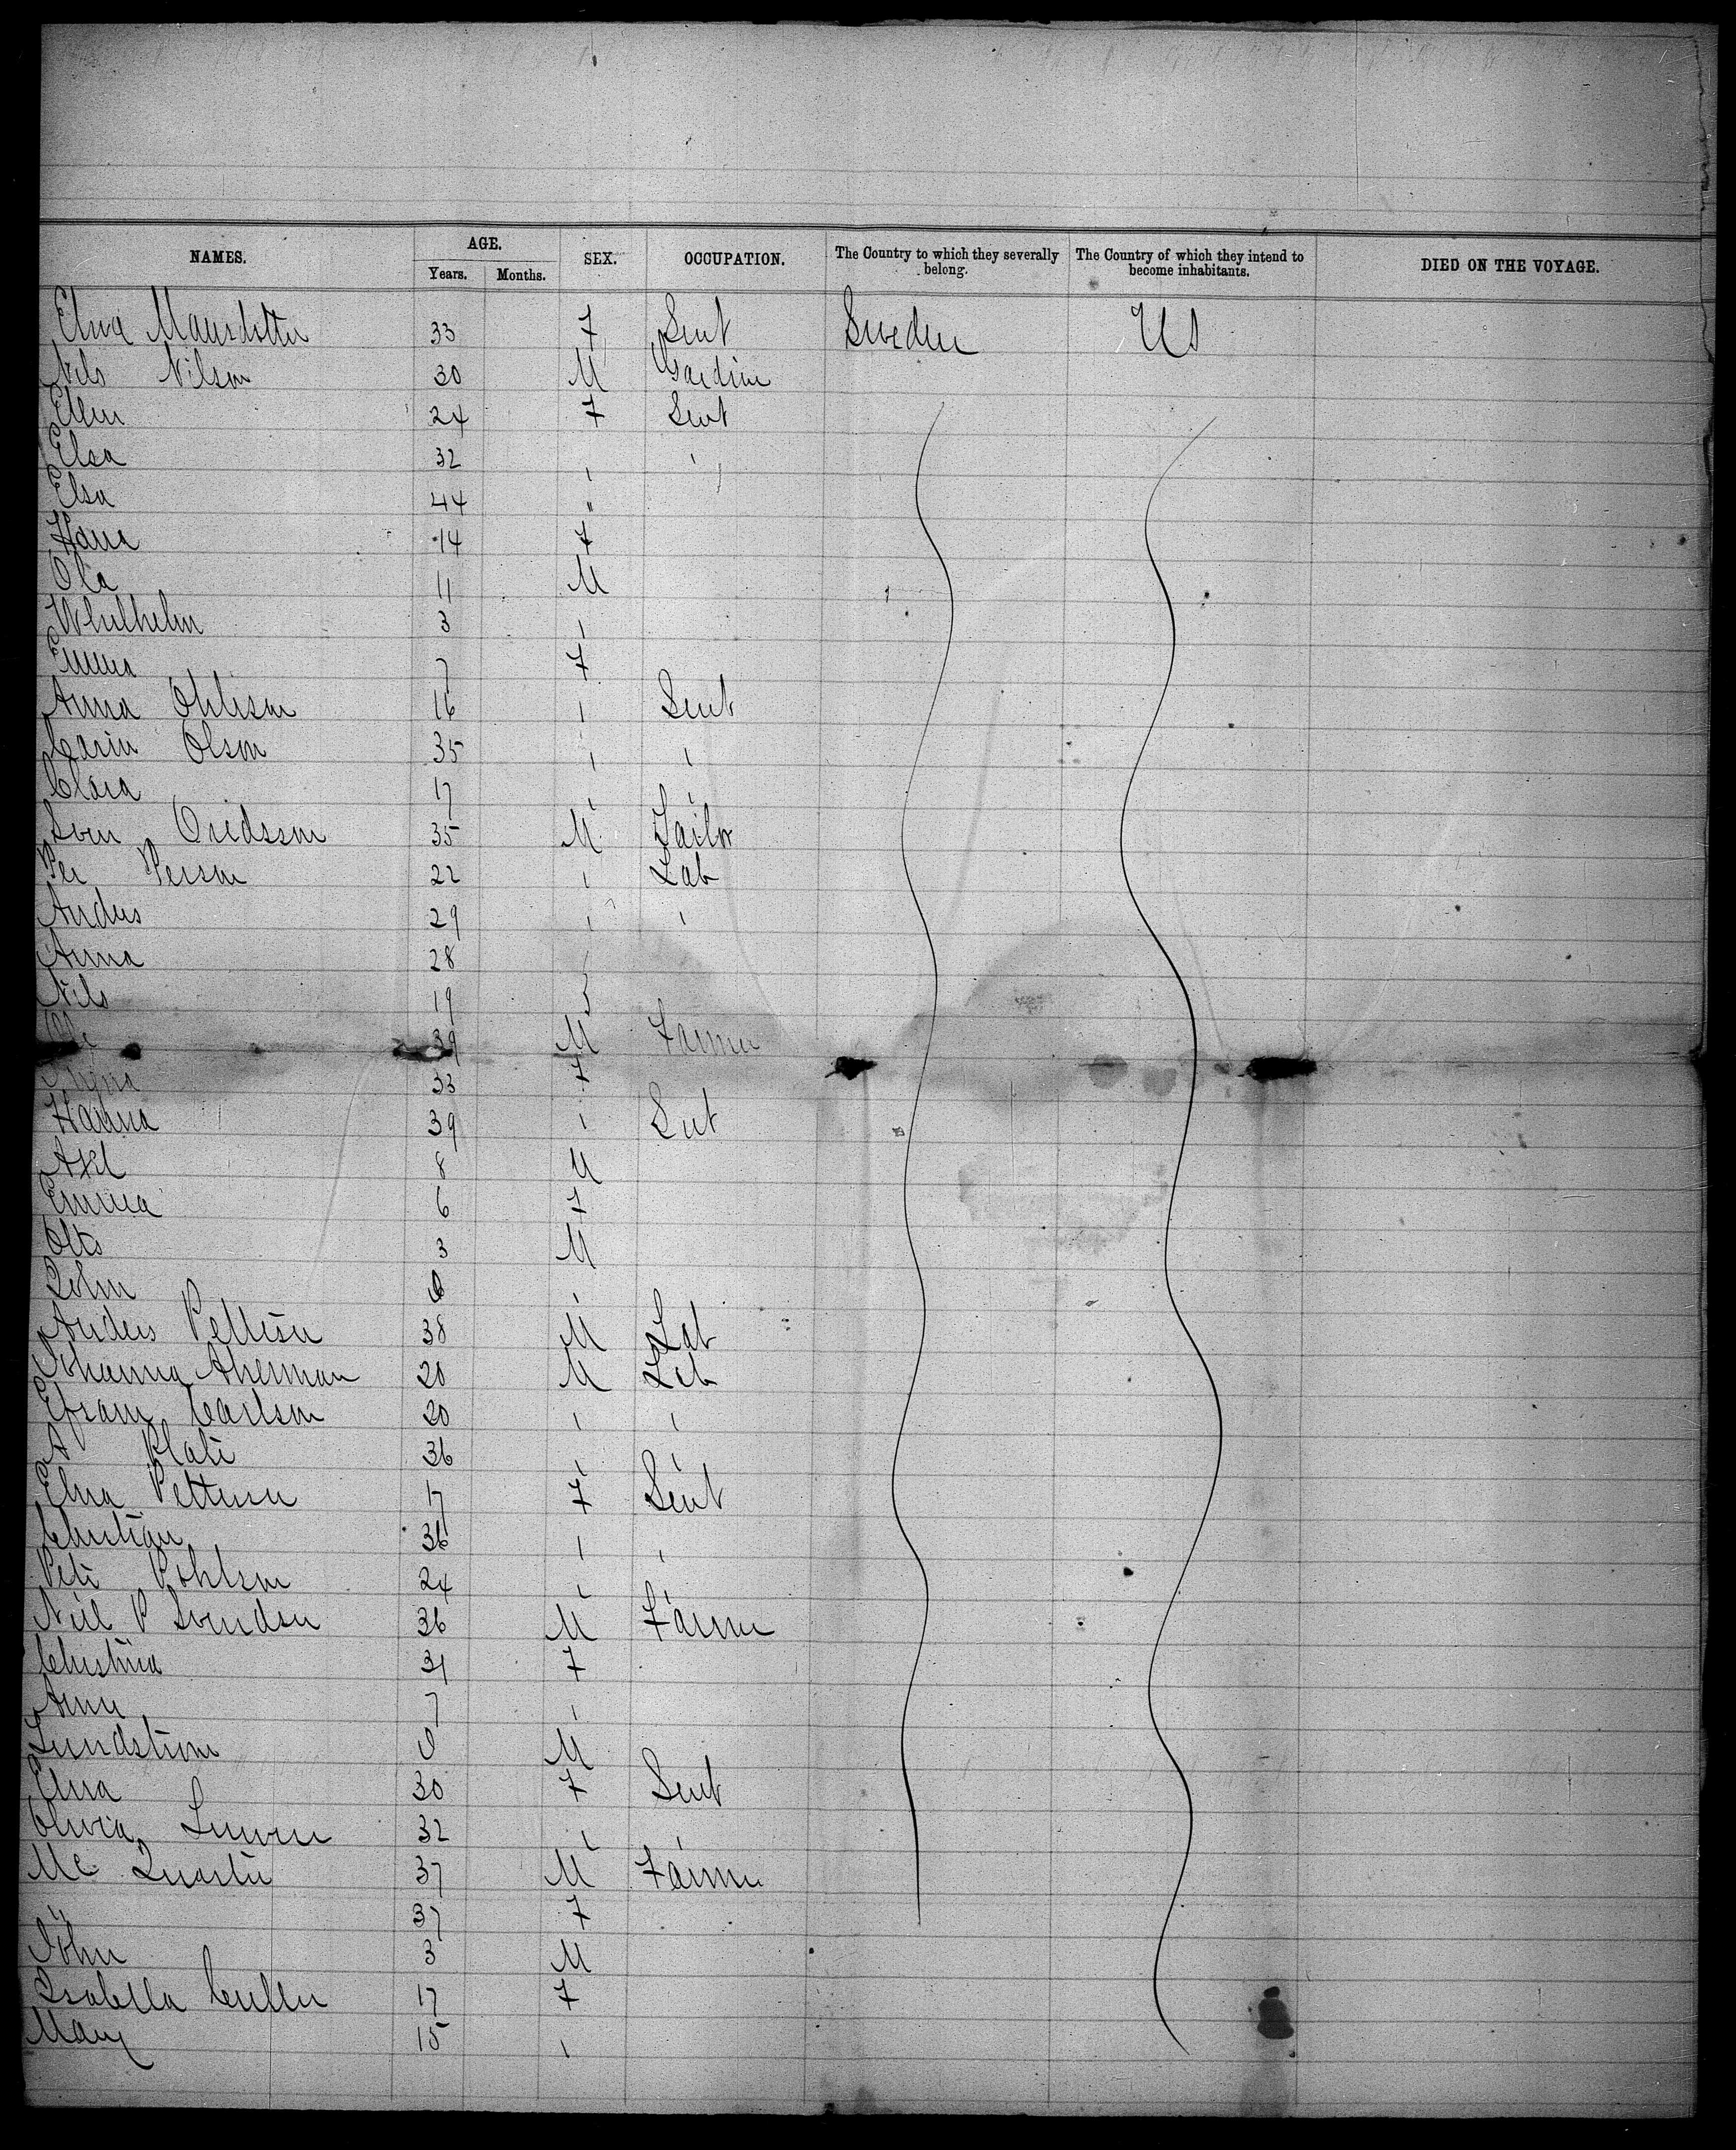 NAMES. AGE. SEX. OCCUPATION. The Country to which they severally belong. The Country of which they intend to become inhabitants. DIED ON THE VOYAGE.
Years. Months.
Elna Mansdotter 33 F Sent Sweden US
Nils Nilson 30 M Gardine
Ellen 24 F Sent
Elsa 32 ı ı
Elsa 44 "
Hana 14 F
Ola 11 M
Whilhelm 3 ı
Emma 7 F
Anna Ohlison 16 ı Sent
Carin Olson 35 ı ı
Clara 17 ı ı
Sven 35 M Tailor
Per Person 22 ı Lab
Andus 29 ı ı
Anna 28
Nils 19
39 M Farmer
33 F
Hanna 39 ı Sent
Axel 8 M
Emma 6 F
Otto 3 M
John 0 ı
Anders Pettesen 38 M Lab
Johanna Aherman 20 M Lab
Efram Carlson 20 ı ı
A Plate 36 ı ı
Elna Pettersn 17 F Sent
Christian 36 ı ı
Pete Pohlson 24 ı ı
Neil P Svendsen 36 M Farmer
Christina 31 F
Anne 7 ı
Lundstrom 0 M
Elna 30 F Sent
Olivia 32 ı ı
Mc 37 M Farmer
" 37 F
John 3 M
Isabella Culler 17 F
Mary 15 ı